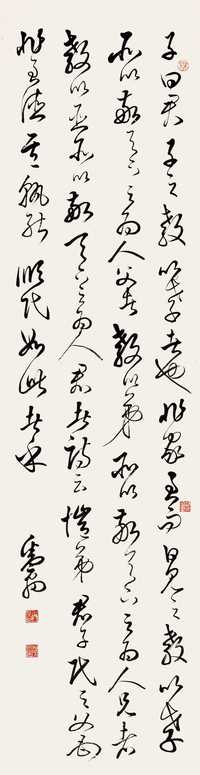 子曰君子之教以孝者也非家至而日見之教以孝
所以敬天下之為人父者教以弟所以敬天下之為人兄者
教以臣所以敬天下之為人君者詩云愷弟君子民之父母
非至德其孰能順民如此者乎